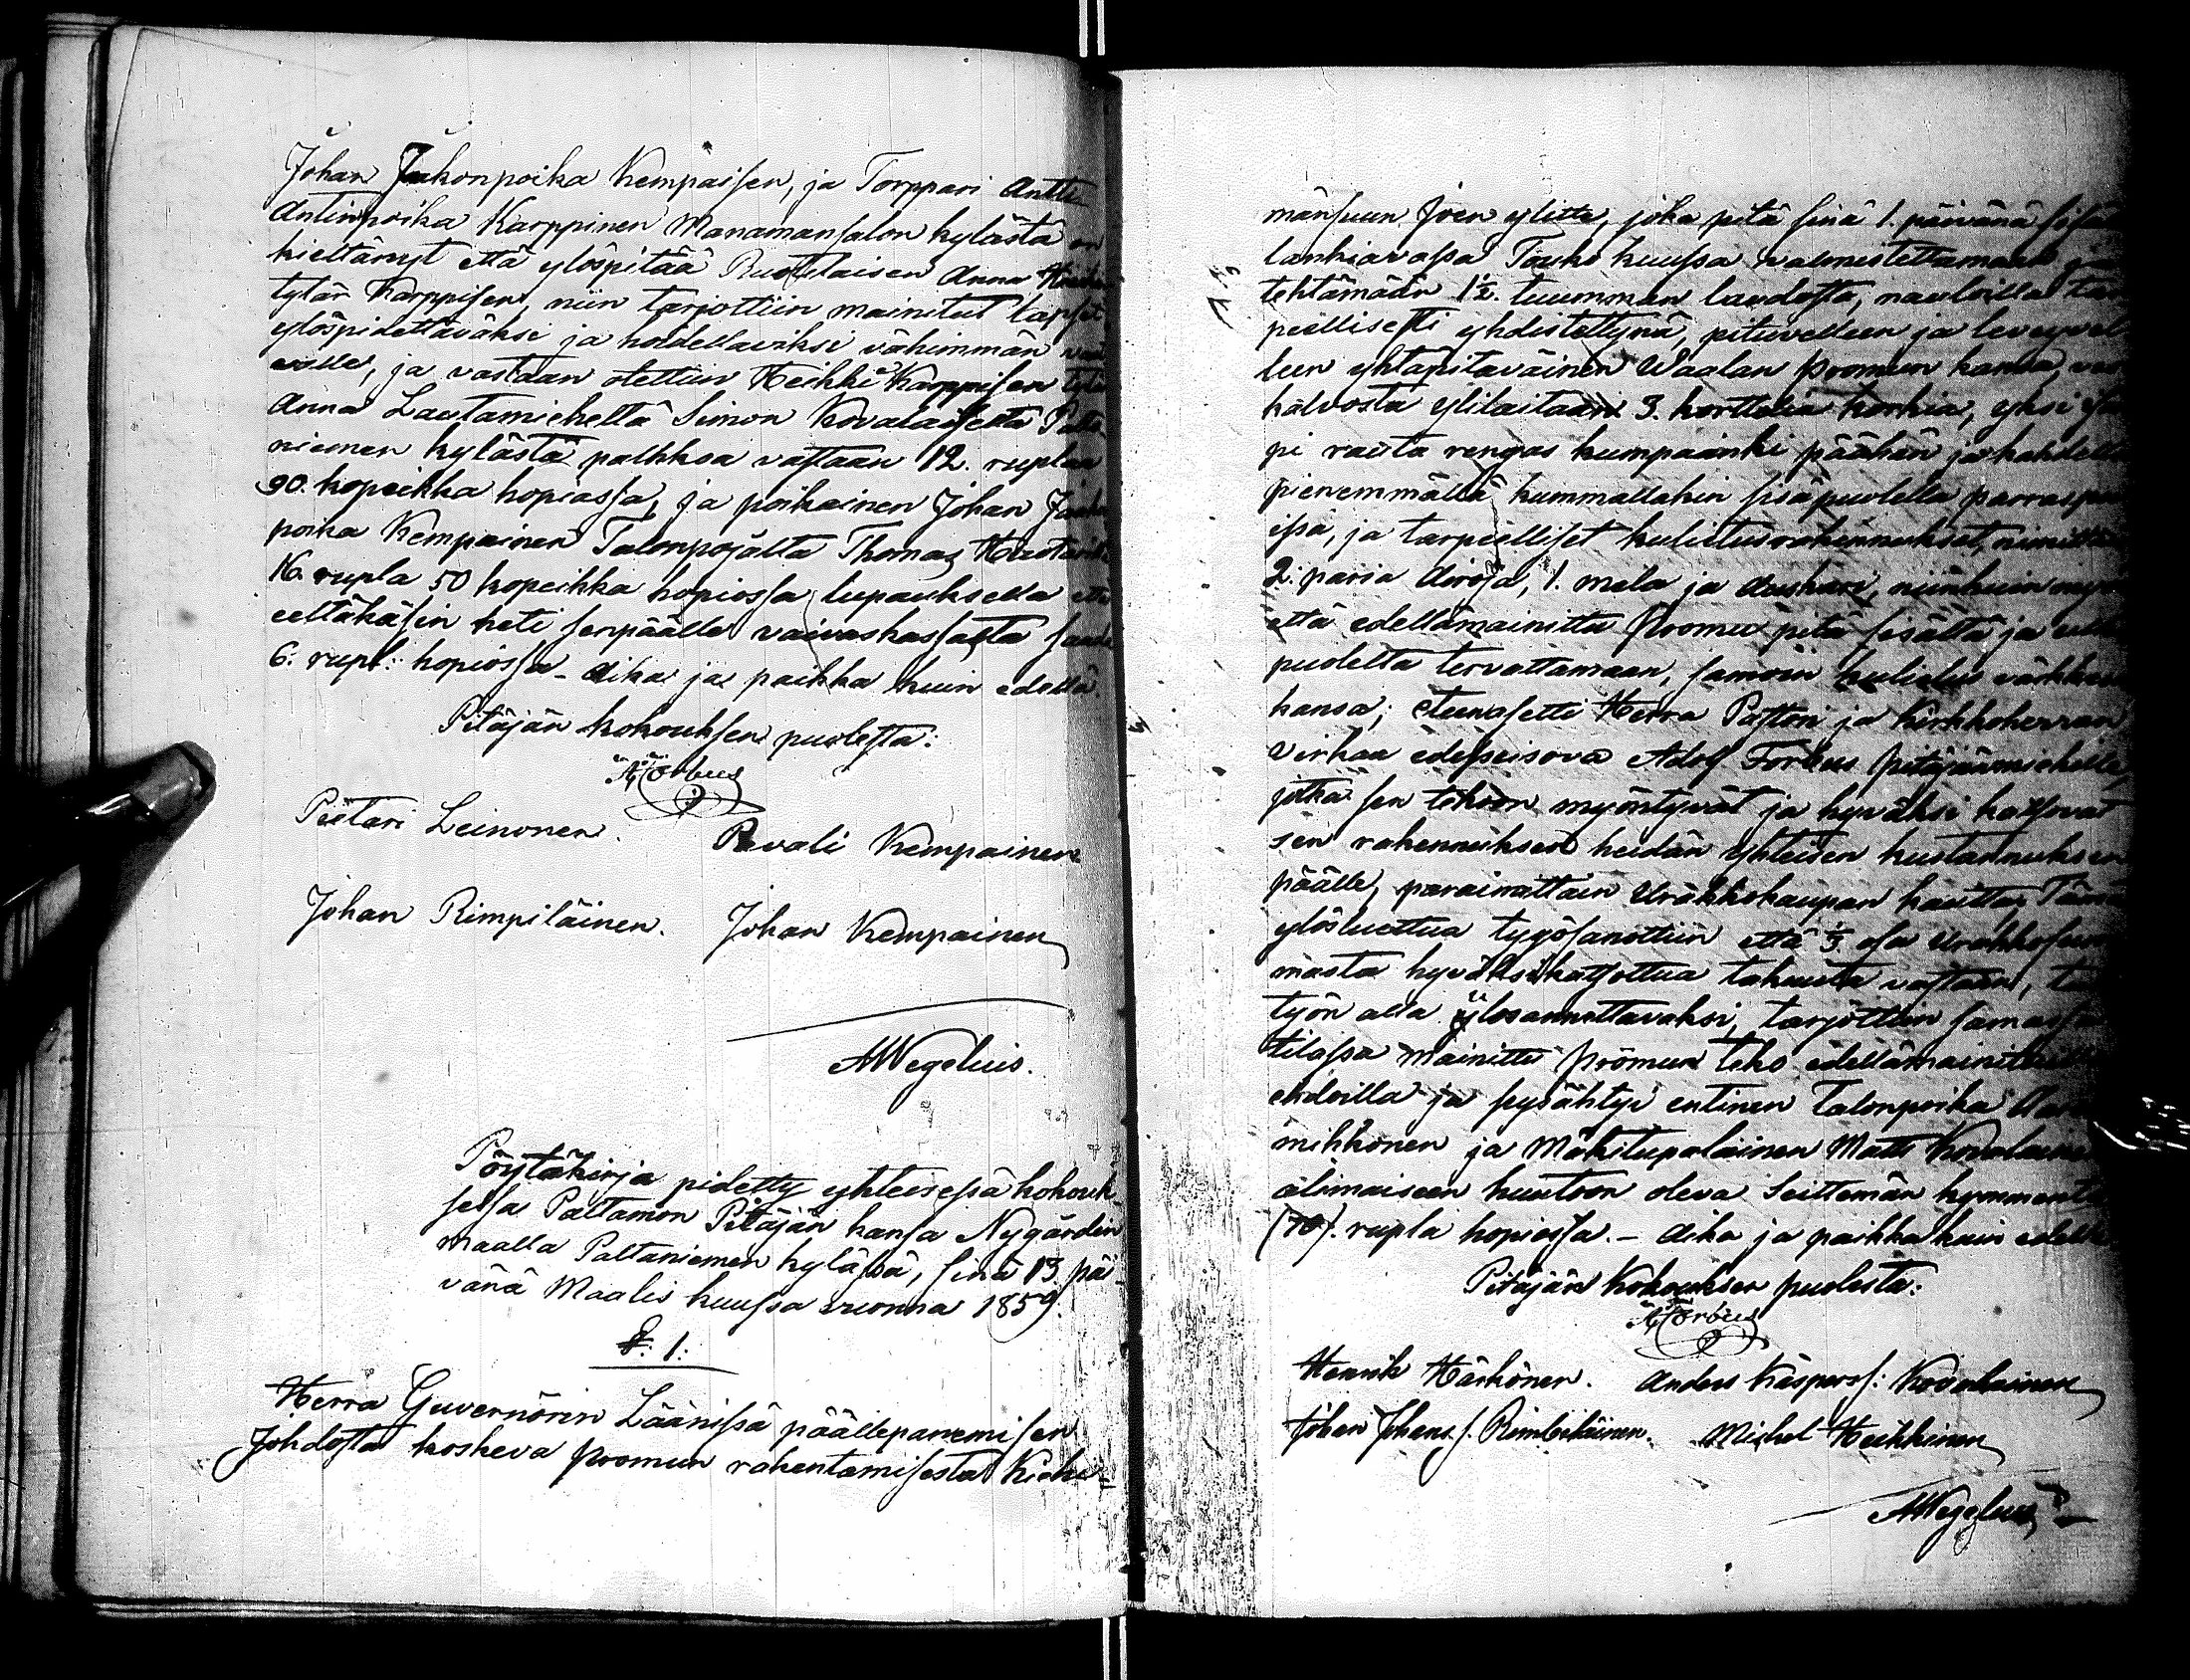 Johan Jaakonpoika Kempaisen, ja Torppari Antti
Antinpoika Karppinen Manamansalon kylästä on
kieltänyt että ylöspitää Ruotilaisen Anna Heikin
tytär Karppisen, niin tarjottiin mainitut lapset
ylöspidettäväksi ja hoidellaviksi vähimmän
eolle, ja vastaan otettiin Heikki Karppisen tytä
Anna Lautamieheltä Simon Kovalaiselta Palta
niemen kylästä palkksa vastaan 12. ruplaa
90. kopeikka hopiassa, ja poikainen Johan Jaako
poika Kempainen Talonpojalta Thomas
16. rupla 50 kopeikka hopiossa lupauksella että
eeltäkäsin heti senpäälle vaivaskassasta saada
6. rupl: hopiossa - Aika ja paikka kuin edellä.
Pitäjän kokouksen puolesta:
A. Forbus
Pietari Leinonen. Paavali Kempainen
Johan Rimpiläinen. Johan Kempainen
AWegelius.
Pöytäkirja pidetty yhteisesä kokouk-
sessa Paltamon Pitäjän kansa Nygårdin
maalla Paltaniemen kylässä, sinä 13 päi-
vänä Maalis kuussa vuonna 1859.
§. 1:
Herra Guvernörin Läänissä päällepanemisen
Johdosta koskeva proomun rakentamisesta Kiehi-
mänsuun Joen ylitte, joka pitä sinä 1. päivänä
lankiavassa Touko kuussa valmistettamaan
tehtämään 1½. tuumman laudosta, nauloilla tar
peellisesti yhdistettynä, pituvelleen ja leveyvel
leen yhtäpitaväinen Waalan proomun kansa,
kalvosta ylilaitaan 3. korttelia korkia, yksi
pi rauta rengas kumpaanki päähän ja kahdella
pienemmällä kummallakin sisäpuolella
issa, ja tarpeelliset kulietusrakennukset, nimittäin
2. paria Airoja, 1. mela ja Auskari, niinkuin myös
että edellämainittu Proomu pitä sisältä ja
puolelta tervattamaan, samoin kulietus värkkein
kansa; eteenasetti Herra Pastori ja Kirkkoherran
virkaa edesseisova Adolf Forbus pitäjänmiehille,
jotka sen tekoon myöntyvät ja hyväksi katsovat
sen rakennuksen heidän yhteisen kustannuksen
päälle, parainattain Urakkokaupan kautta. Täm
ylösluettua tygösanottiin että ⅓ osa Urakkosum
masta hyväksikatsottua takuuta vastaan,
työn alla ylosannettavaksi, tarjottiin samassa
tilassa mainittu proomun teko edellämainituilla
ehdoilla ja pysähtyi entinen Talonpoika
mikkonen ja Mäkitupalainen Matts Kovalainen
alimaiseen huutoon oleva Seittemän kymmentä
(70). rupla hopiassa. - Aika ja paikka kuin edellä.
Pitäjän Kokouksen puolesta:
A. Forbus
Henrik Härkönen. Anders Käspers: Kovalainen
Johan Johans s. Rimbiläinen. Michel Heikkinen
AWegelius